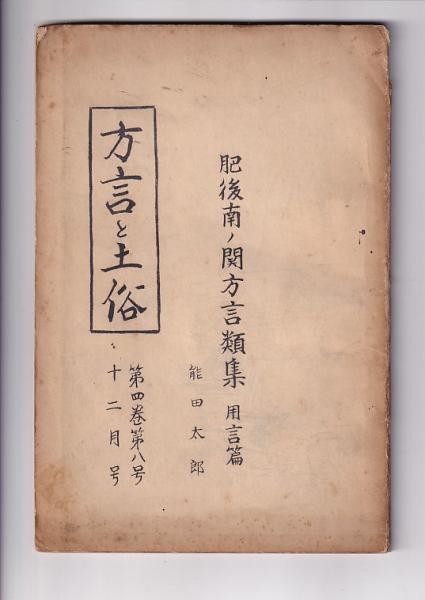 肥後南ノ関方言類集 用言篇
能田太郎
方言と土俗
第四巻第八号
十二月号